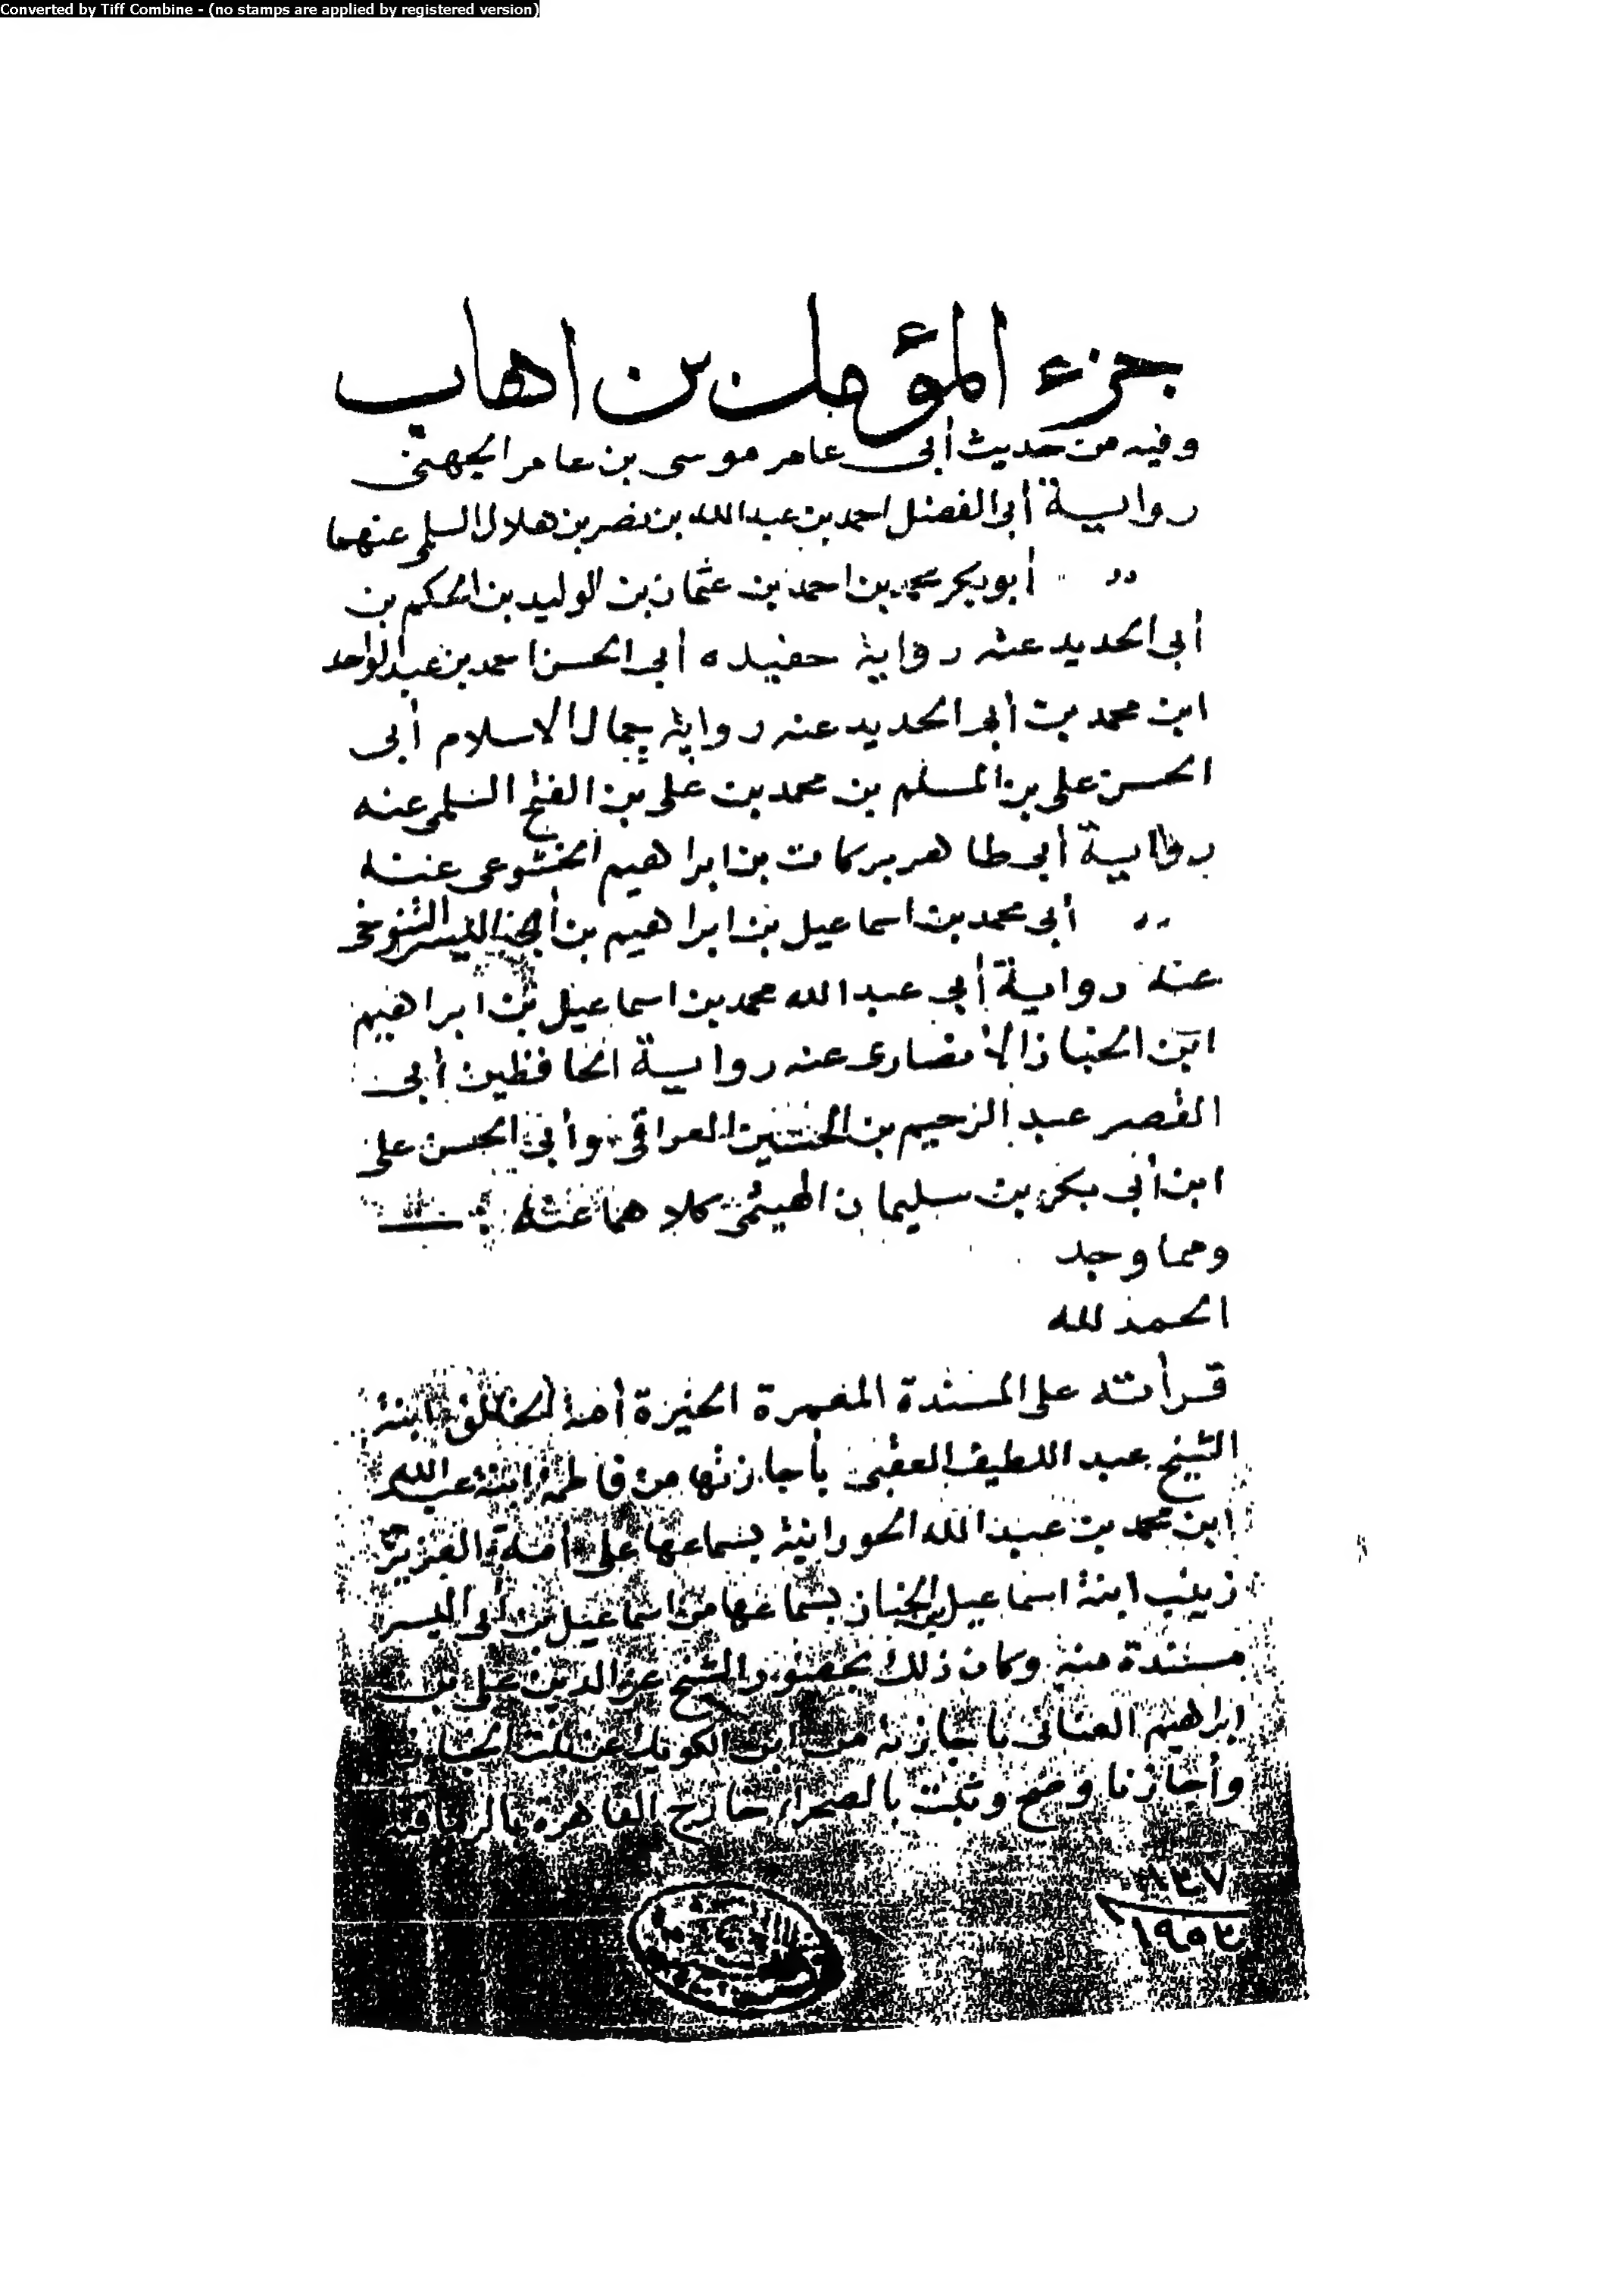 Converted by Tiff Combine - (no stamps are applied by registered version)
جزء المؤمل بن اهاب
وفيه من حديث أبى عامر موسى بن عامر الجهنى
رواية أبى الفضل احمد بن عبد الله بن نصر بن هلال السلمى عنهما
 أبو بكر محمد بن احمد بن عثمان بن الوليد بن الحكم بن
أبى الحديد عنه رواية حفيده أبى الحسن احمد بن عبد الواحد
ابن محمد بن أبى الحديد عنه رواية جمال الاسلام أبى
الحسن على بن المسلم بن محمد بن على بن الفتح السلمى عنه
رواية أبى طاهر بركات بن ابراهيم الخشوعى عنه
أبى محمد بن اسماعيل بن ابراهيم بن أبى اليسر التنوخى
عنه رواية أبى عبد الله محمد بن اسماعيل بن ابراهيم
ابن الخباز الانصارى عنه رواية الحافظين أبى
الفضر عبد الرحيم بن الحسين العراقى وأبى الحسن على
ابن أبى بكر بن سليمان الهيثمى كلاهما عنه
ومما وجد
الحمد لله
قرأته على المسندة المعمرة الخيرة أمة الخالق ابنة
الشيخ عبد اللطيف العقبى بأجازتها من فاطمة ابنة عبد الله
ابن محمد بن عبد الله الحورانية بسماعها على أمة العزيز
زينب ابنة اسماعيل بن الخباز بسماعها من اسماعيل بن أبى اليسر
مسندة منه وكان ذلك بحضور الشيخ عز الدين على بن
ابراهيم العنانى باجازته من ابن الكويك عن بنت الخباز
وأجازنا وصح وثبت بالصحراء خارج القاهرة
١٩٥٢